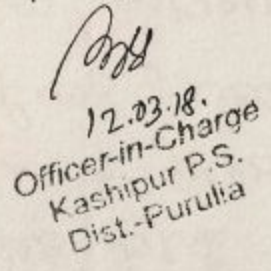 12.03.18.
Officer-in-Charge
Kashipur P.S.
Dist.-Purulia